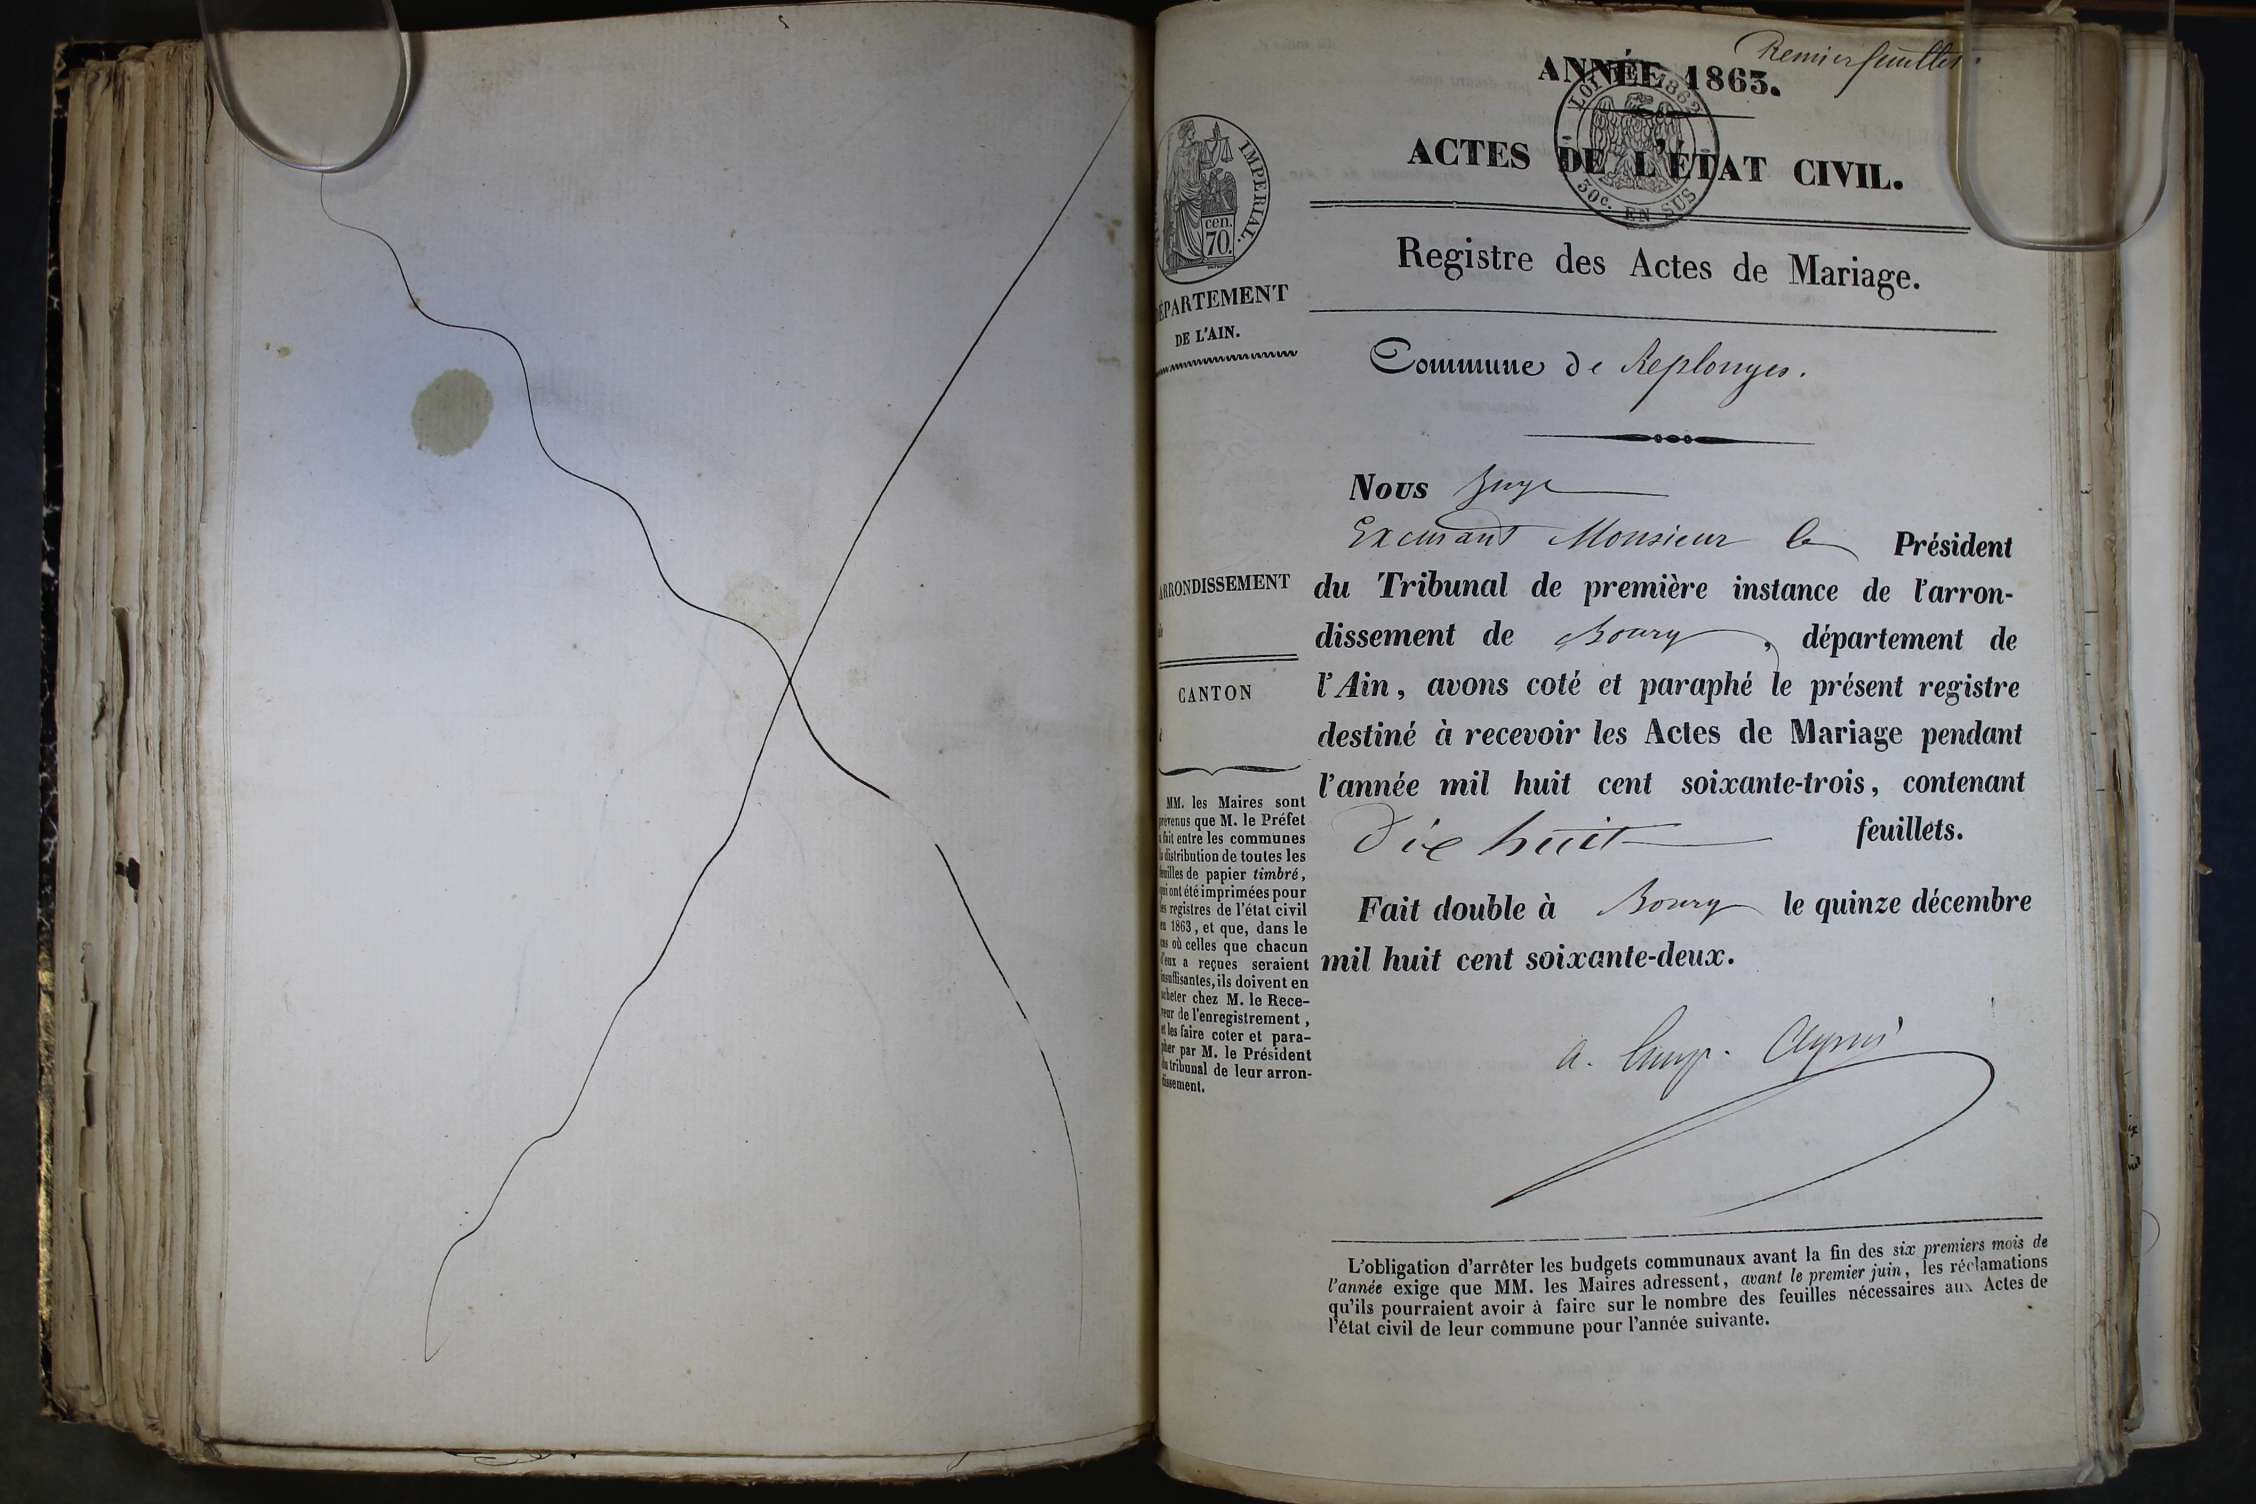 Premier feuillet.
ANNÉE 1863.
LOI 1862
30c. EN SUS
ACTES DE L'ÉTAT CIVIL.
IMPERIAL.
cen.
70.
Registre des Actes de Mariage.
DÉPARTEMENT
DE L'AIN.
Commune de Replonges.
Nous Juge
Excusant Monsieur le Président
ARRONDISSEMENT
du Tribunal de première instance de l'arron-
dissement de Bourg, département de
l'Ain, avons coté et paraphé le présent registre
CANTON
destiné à recevoir les Actes de Mariage pendant
l'année mil huit cent soixante-trois, contenant
dix huit feuillets.
Fait double à Bourg le quinze décembre
mil huit cent soixante-deux.
MM. les Maires sont
prévenus que M. le Préfet
a fait entre les communes
la distribution de toutes les
feuilles de papier timbré,
qui ont été imprimées pour
les registres de l'état civil
en 1863, et que, dans le
cas où celles que chacun
d'eux a reçues seraient
insuffisantes, ils doivent en
acheter chez M. le Rece-
veur de l'enregistrement,
et les faire coter et para-
pher par M. le Président
du tribunal de leur arron-
dissement.
L'obligation d'arrêter les budgets communaux avant la fin des six premiers mois de
l'année exige que MM. les Maires adressent, avant le premier juin, les réclamations
qu'ils pourraient avoir à faire sur le nombre des feuilles nécessaires aux Actes de
l'état civil de leur commune pour l'année suivante.